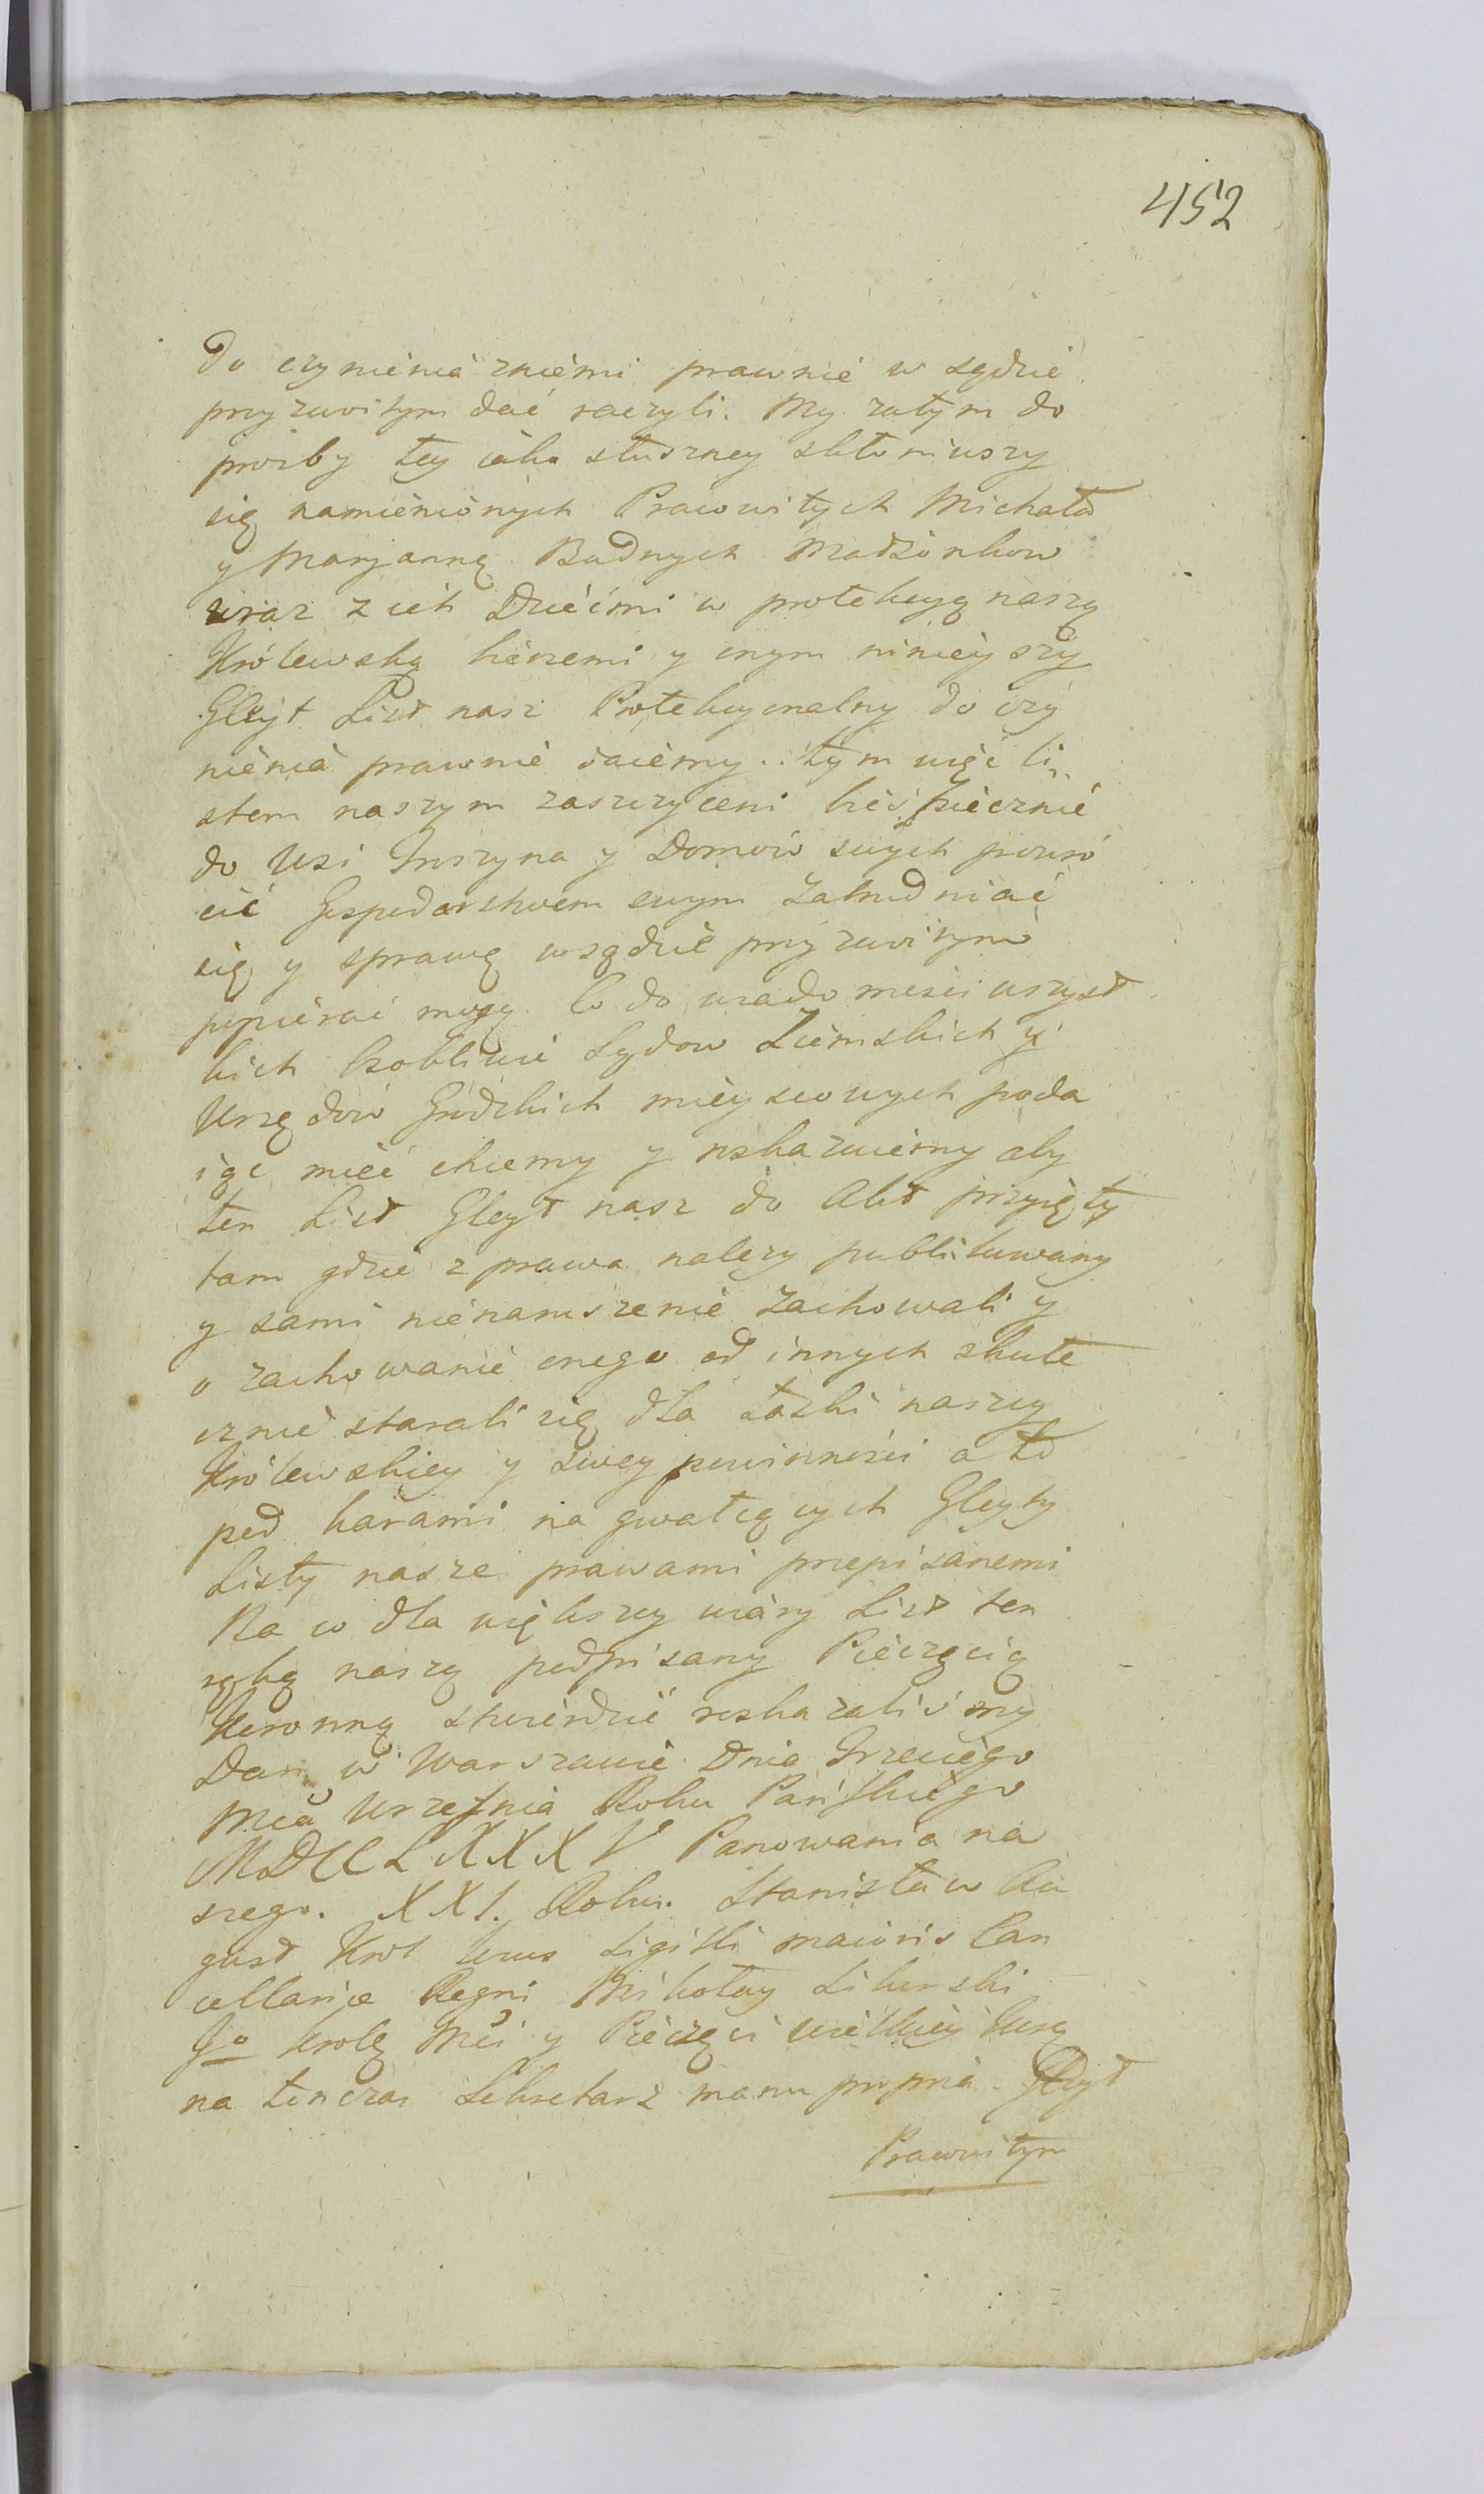 452
do czynienia zniemi prawnie w sądzie
przyzwoitym dać raczyli. My zatym do
prozby tey iako słuszney skłoniwszy
się namienionych Pracowitych Michała
y Maryannę Budnych Małżonkow
wraz z ich Dziećmi w protekcyą naszą
Królewską bierzemi y onym ninieyszy
Gleyt List nasz Protekcyonalny do czy
nienia prawnie daiemy. tym więc li
stem naszym zaszczyceni beśpiecznie
do Wsi Gruszyna y Domow swych powró
cić Gospodarstwem swym Zatrudniać
się y sprawę w sądzie przyzwoitym
popierać mogą. Co do wiadomości wszyst
kich Osobliwie Sądow Ziemskich y
Urzędow Grodzkich mieyscowych poda
iąc mieć chcemy y roskazuiemy aby
ten List Gleyt nasz do Akt przyięty
tam gdzie z prawa należy publikowany
y sami nienaruszenie zachowali y
o zachowanie onego od innych skute
cznie starali się dla łaski naszey
Królewskiey y swey powinności a to
pod karami na gwałcących Gleyty
Listy nasze prawami przepisanemi
Na co dla większey wiary List ten
ręką naszą podpisany Pieczęcią
Koronną stwierdzić roskazaliśmy
Dan w Warszawie Dnia Trzeciego
Mca Wrzesnia Roku Pańskiego
MDCCLXXXV Panowania na
szego. XXI. Roku. Stanisław Au
gust Krol Locus Sigilli maioris Can
cellariæ Regni Mikołay Sikorski
Jo Krolę Mci y Pieczęci wielkiey Kor
na tenczas Sekretarz manu propria. Gleyt
Pracowitym